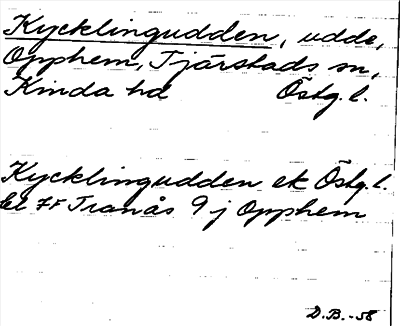 Kycklingudden, udde,
Opphem, Tjärstads sn,
Kinda hd Östg. l.
Kycklingudden ek Östg. l.
bl 7F Tranås 9 j Opphem
D.B.-58